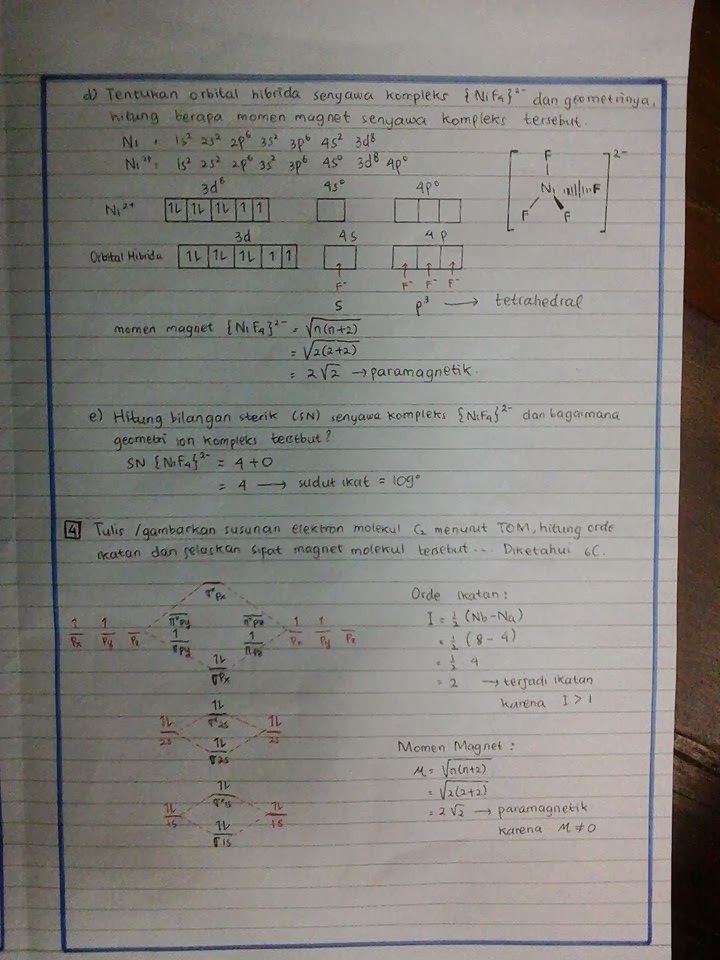 d) Tentukan orbital hibrida senyawa kompleks {NiF₄}²⁻ dan geometrinya,
hitung berapa momen magnet senyawa kompleks tersebut.
Ni : 1s² 2s² 2p⁶ 3s² 3p⁶ 4s² 3d⁸
Ni²⁺: 1s² 2s² 2p⁶ 3s² 3p⁶ 4s⁰ 3d⁸ 4p⁰
3d⁸ 4s⁰ 4p⁰
Ni²⁺ 1L 1L 1L 1 1
F
Ni F
F F
2-
3d 4s 4p
Orbital Hibrida 1L 1L 1L 1 1
F⁻ F⁻ F⁻ F⁻
s p³ → tetrahedral
momen magnet {NiF₄}²⁻ = √n(n+2)
= √2(2+2)
= 2√2 → paramagnetik.
e) Hitung bilangan sterik (SN) senyawa kompleks {NiF₄}²⁻ dan bagaimana
geometri ion kompleks tersebut?
SN {NiF₄}²⁻ = 4 + 0
= 4 → sudut ikat = 109°
4 Tulis /gambarkan susunan elektron molekul C₂ menurut TOM, hitung orde
ikatan dan jelaskan sifat magnet molekul tersebut... Diketahui 6C.
σ*Px
π*Py π*Pz
1 1 1 1
Px Py Pz Px Py Pz
1 1
πPy πPz
1L
σPx
1L
σ*2s
1L 1L
2s 2s
1L
σ2s
1L
σ*1s
1L 1L
1s 1s
1L
σ1s
Orde Ikatan :
I = ½ (Nb-Na)
= ½ (8 - 4)
= ½ 4
= 2 → terjadi ikatan
karena I > 1
Momen Magnet :
M = √n(n+2)
= √2(2+2)
= 2√2 → paramagnetik
karena M ≠ 0